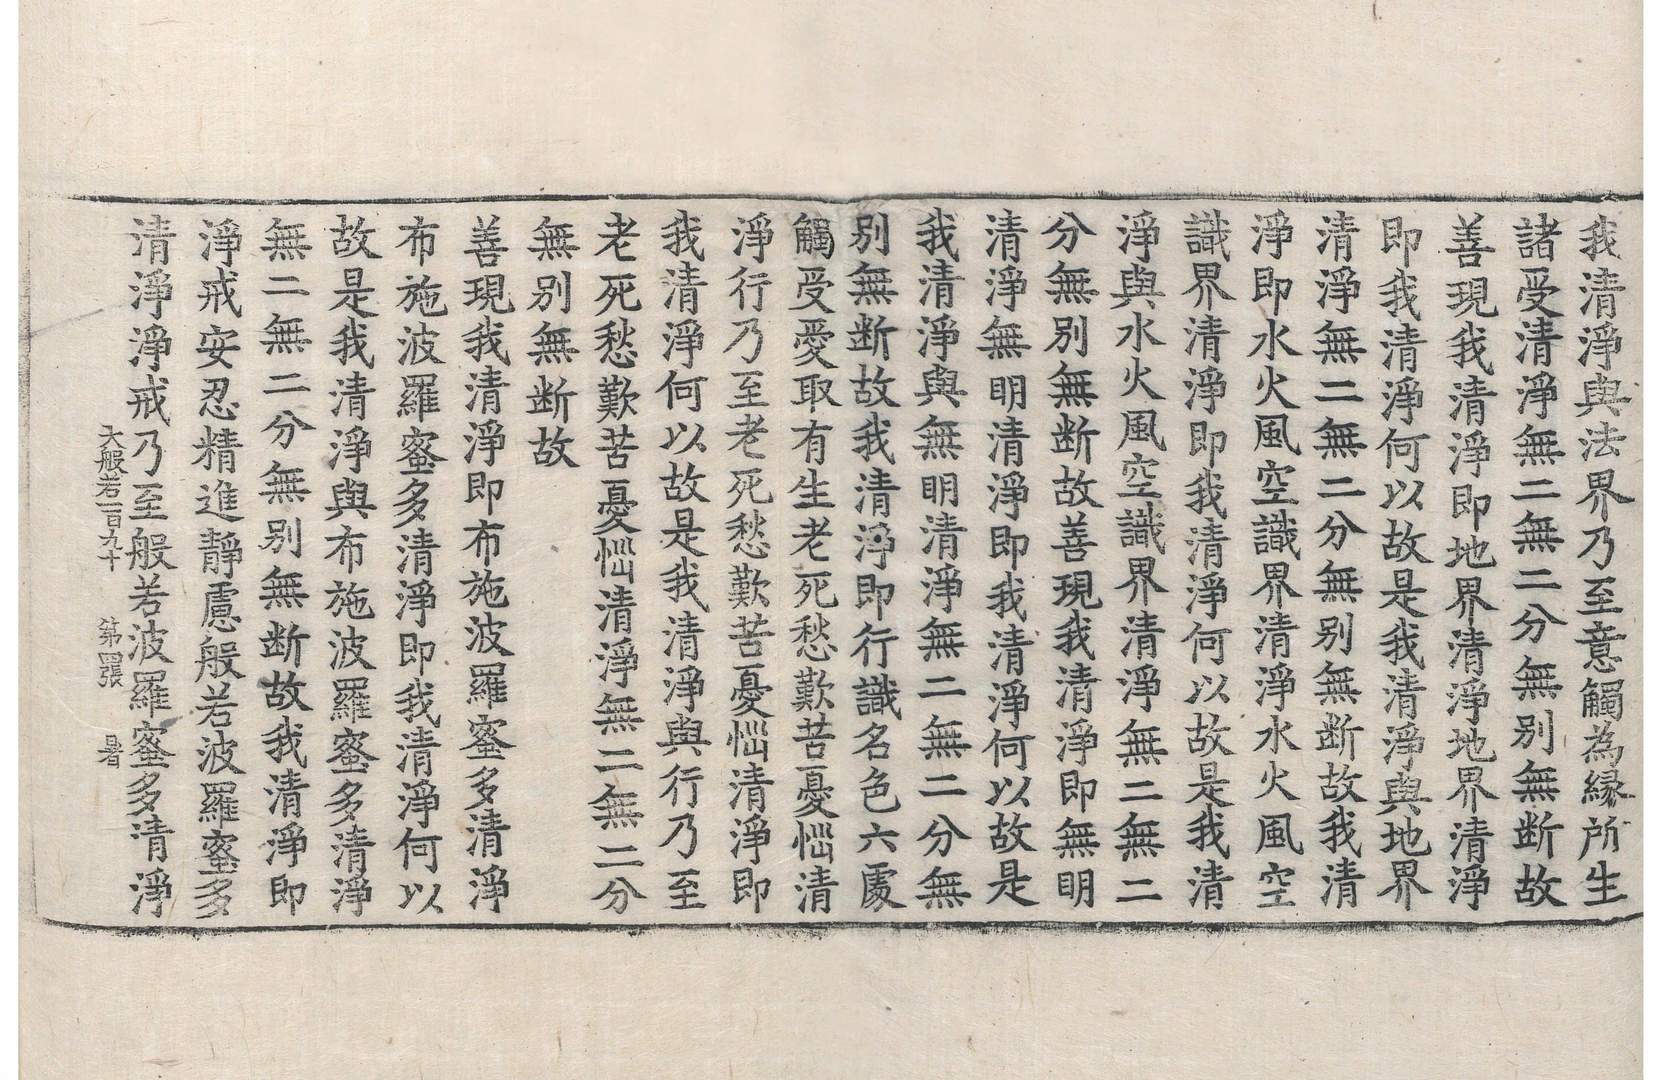 我清淨與法界乃至意觸為緣所生
諸受清淨無二無二分無別無断故
善現我清淨即地界清淨地界清淨
即我清淨何以故是我清淨與地界
清淨無二無二分無別無断故我清
淨即水火風空識界清淨水火風空
識界清淨即我清淨何以故是我清
淨與水火風空識界清淨無二無二
分無別無断故善現我清淨即無明
清淨無明清淨即我清淨何以故是
我清淨與無明清淨無二無二分無
別無断故我清淨即行識名色六處
觸受愛取有生老死愁歎苦憂惱清
淨行乃至老死愁歎苦憂惱清淨即
我清淨何以故是我清淨與行乃至
老死愁歎苦憂惱清淨無二無二分
無別無断故
善現我清淨即布施波羅蜜多清淨
布施波羅蜜多清淨即我清淨何以
故是我清淨與布施波羅蜜多清淨
無二無二分無別無断故我清淨即
淨戒安忍精進靜慮般若波羅蜜多
清淨淨戒乃至般若波羅蜜多清淨
大般若一百九十 第四張 暑